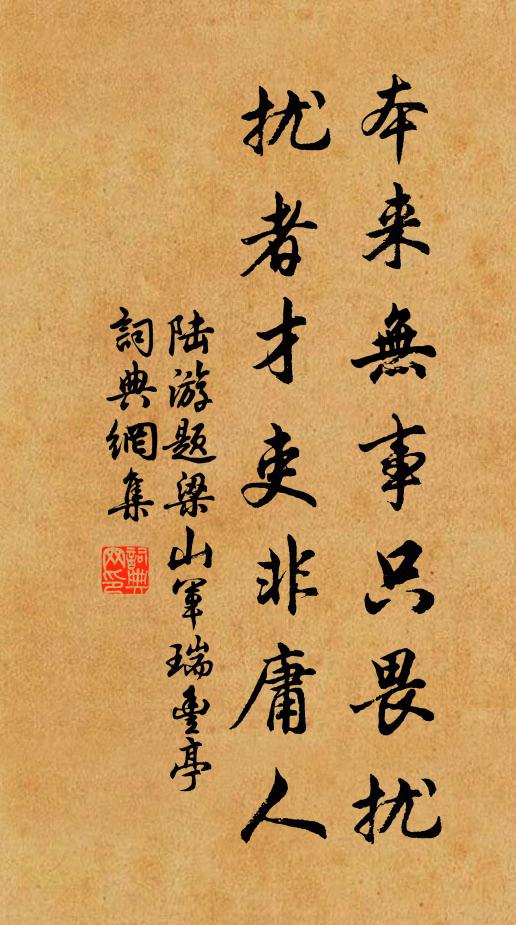 本来無事只畏扰
扰者才吏非庸人
陆游题梁山军瑞豊亭
詞典網集
詞典网印